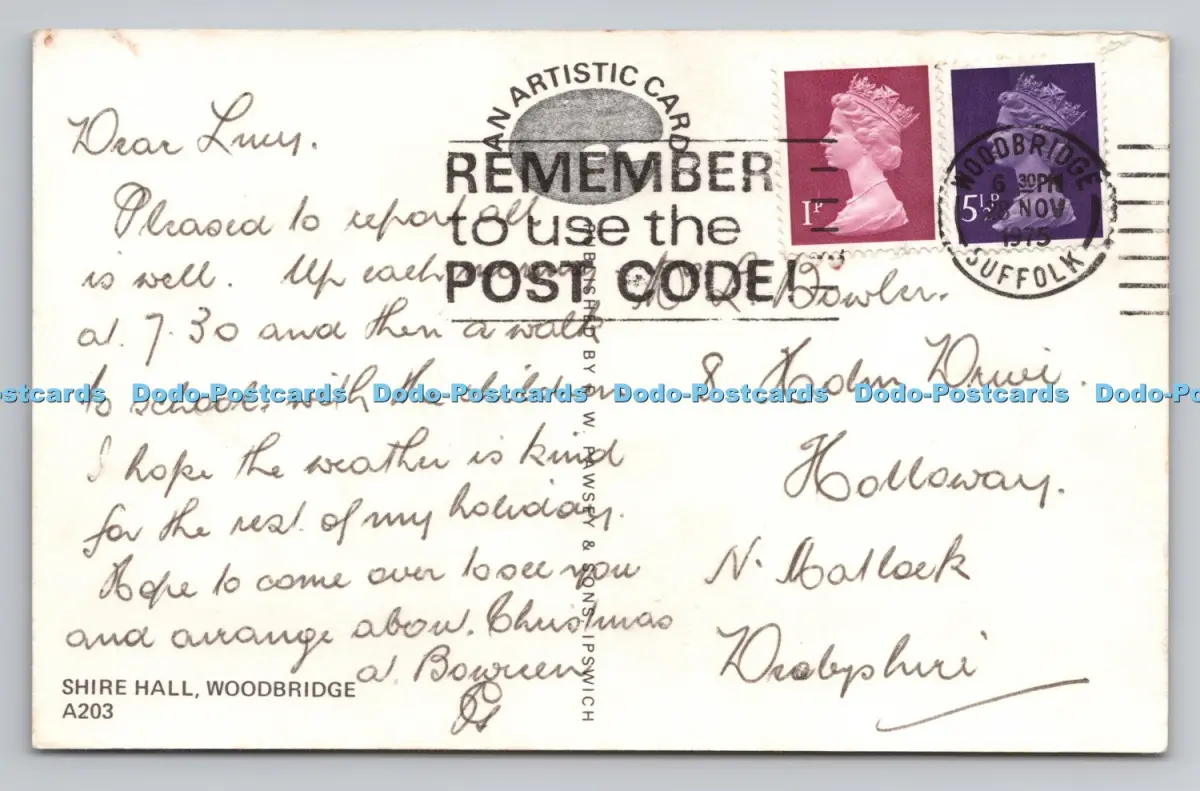 Dear Lucy.
Pleased to report all
is well. Up each
at 7.30 and then a walk
to school with the children
I hope the weather is kind
for the rest of my holiday.
Hope to come over to see you
and arrange about Christmas
at
SHIRE HALL, WOODBRIDGE
A203
AN ARTISTIC CARD
REMEMBER
to use the
POST CODE!
PUBLISHED BY F. W. PAWSEY & SONS, IPSWICH
1P
5½P
WOODBRIDGE
6 30PM
NOV
1975
SUFFOLK
L Bowler.
8 Holm Drive.
Holloway.
N. Matlock
Derbyshire
Dodo-Postcards Dodo-Postcards Dodo-Postcards Dodo-Postcards Dodo-Postcards